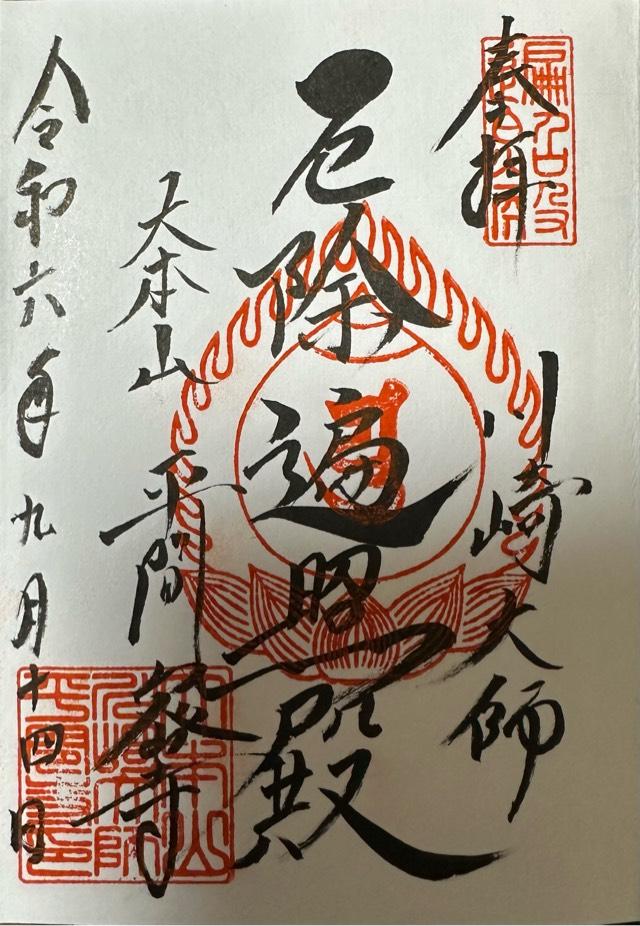 奉拝
川崎大師
厄除遍照殿
大本山
平間寺
令和六年九月十四日